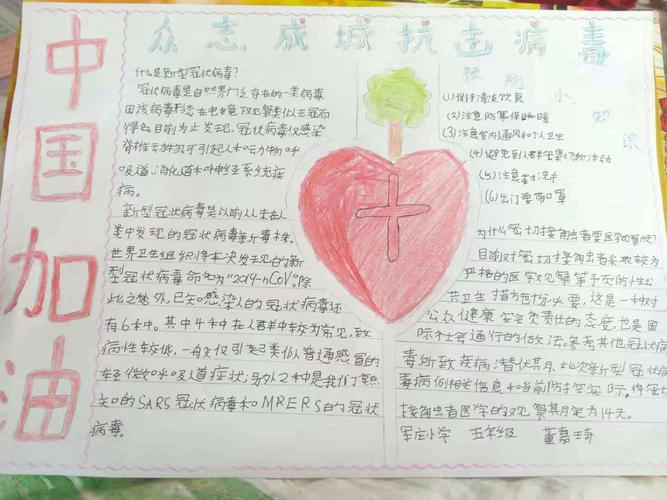 中国加油
众志成城抗击病毒
什么是新型冠状病毒?
冠状病毒是自然界广泛存在的一类病毒
因该病毒形态在电镜下观察类似王冠而
得名目前为止发现,冠状病毒仅感染
脊椎动物,可引起人和动物呼
吸道、消化道和神经系统疾
病。
新型冠状病毒是以前从未在人
类中发现的冠状病毒新毒株。
世界卫生组织将本次发现的新
型冠状病毒命名为"2019-nCoV"。除
此之外,已知感染人的冠状病毒还
有6种。其中4种在人群中较为常见,致
病性较低,一般仅引起类似普通感冒的
轻微呼吸道症状;另外2种是我们熟
知的SARS冠状病毒和MRERS的冠状
病毒。
预防小知识
(1)保持清淡饮食
(2)注意防寒保暖
(3)注意室内通风和个人卫生
(4)避免到人群密集场所活动
(5)注意勤洗手
(6)出门要带口罩
为什么密切接触者要医学观察?
目前对密切接触者采取较为
严格的医学观察等预防性公
共卫生措施必要,这是一种对
公众健康安全负责任的态度,也是国
际社会通行的做法。参考其他冠状病
毒所致疾病潜伏期、此次新型冠状病
毒病例相关信息和当前防控实际,将密切
接触者医学的观察期定为14天。
军庄小学 五年级 董嘉琦